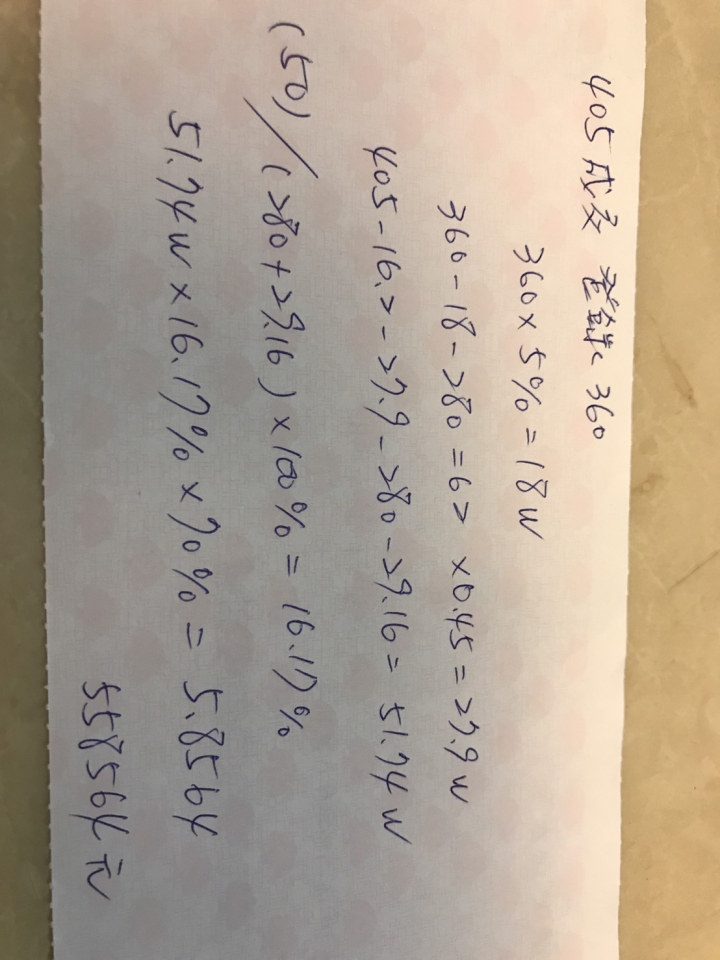 405成交 360
360×5%=18w
360-18-280=62 ×0.45=27.9w
405-16.2-27.9-280-29.16=51.74w
(50)/(280+29.16)×100%=16.17%
51.74w×16.17%×70%=5.8564
558564元